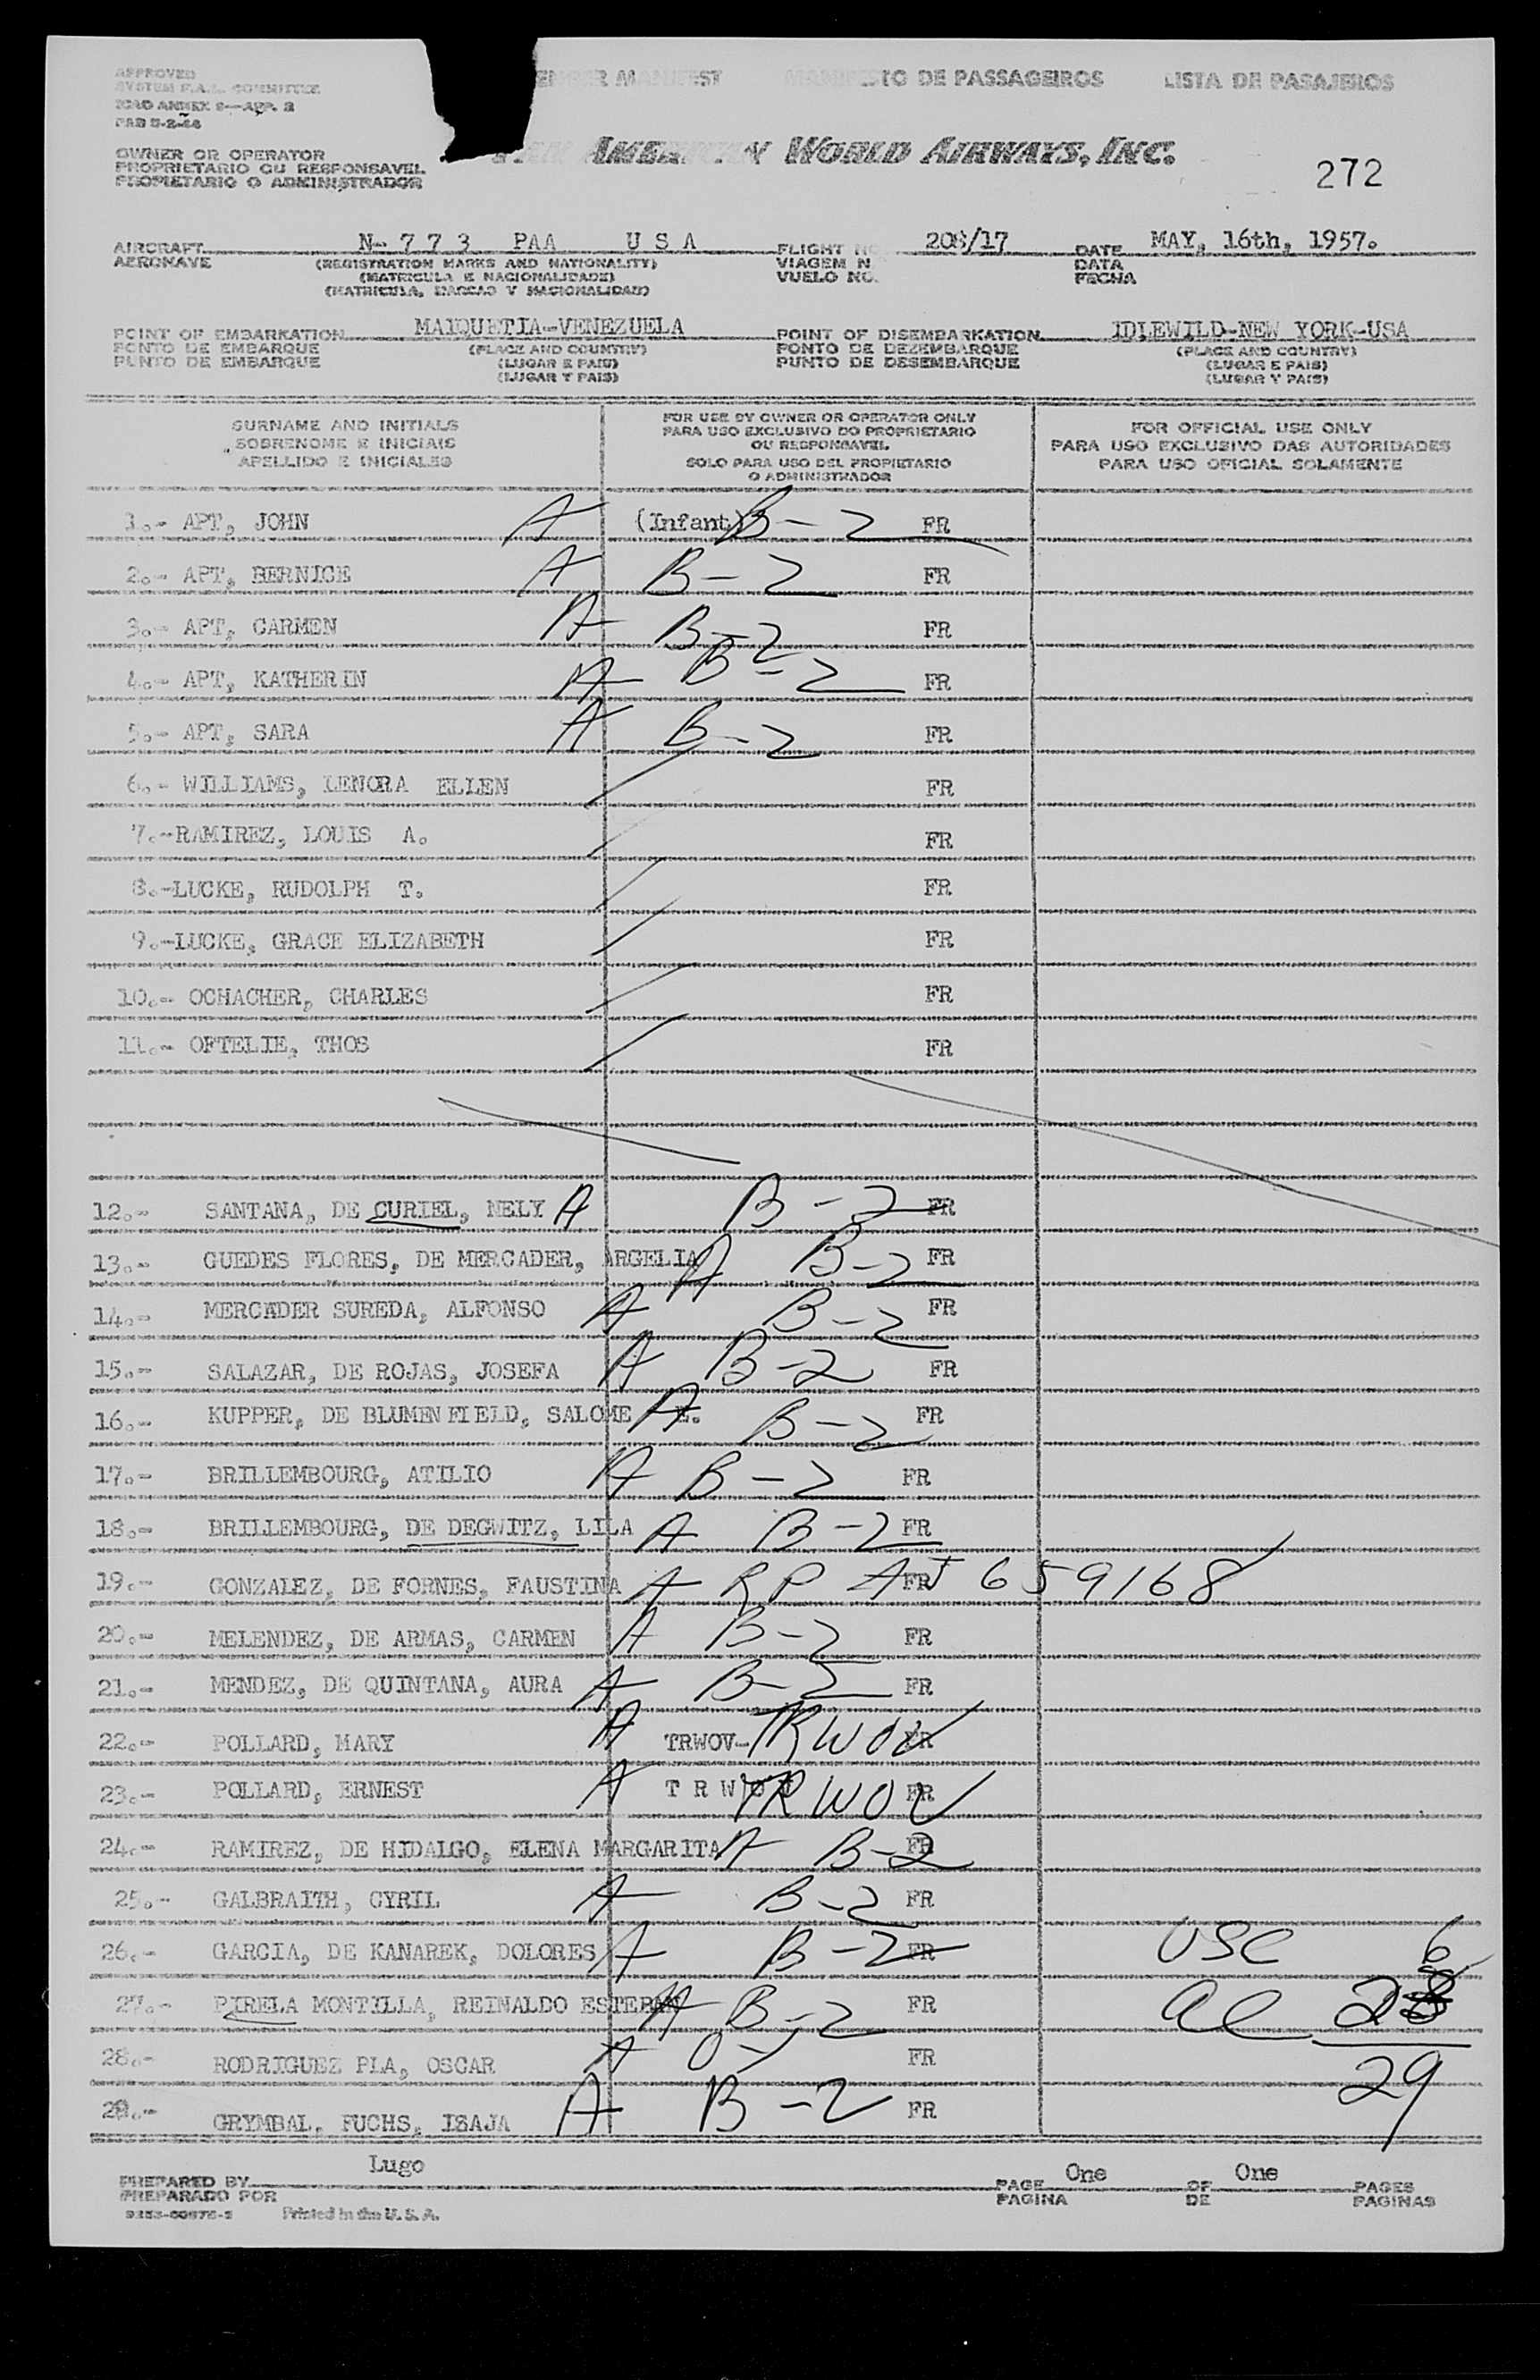 APPROVED
SYSTEM F.A.L. COMMITTEE
ICAO ANNEX 9—APP. 3
MANIFEST MANIFESTO DE PASSAGEIROS LISTA DE PASAJEROS
WORLD AIRWAYS, INC.
272
OWNER OR OPERATOR
PROPRIETARIO OU RESPONSAVEL
PROPIETARIO O ADMINISTRADOR
AIRCRAFT N-773 PAA U S A FLIGHT NO. 208/17 DATE MAY, 16th, 1957.
AERONAVE (REGISTRATION MARKS AND NATIONALITY) VIAGEM N DATA
(MATRICULA E NACIONALIDADE) VUELO NO. FECHA
(MATRICULA, MARCAS Y NACIONALIDAD)
POINT OF EMBARKATION MAIQUETIA-VENEZUELA POINT OF DISEMBARKATION IDLEWILD-NEW YORK-USA
PONTO DE EMBARQUE (PLACE AND COUNTRY) PONTO DE DEZEMBARQUE (PLACE AND COUNTRY)
PUNTO DE EMBARQUE (LUGAR E PAIS) PUNTO DE DESEMBARQUE (LUGAR E PAIS)
(LUGAR Y PAIS) (LUGAR Y PAIS)
SURNAME AND INITIALS
SOBRENOME E INICIAIS
APELLIDO E INICIALES
FOR USE BY OWNER OR OPERATOR ONLY
PARA USO EXCLUSIVO DO PROPRIETARIO
OU RESPONSAVEL
SOLO PARA USO DEL PROPIETARIO
O ADMINISTRADOR
FOR OFFICIAL USE ONLY
PARA USO EXCLUSIVO DAS AUTORIDADES
PARA USO OFICIAL SOLAMENTE
1.- APT, JOHN A (Infant) B-2 FR
2.- APT, BERNICE A B-2 FR
3.- APT, CARMEN A B-2 FR
4.- APT, KATHERIN A B-2 FR
5.- APT, SARA A B-2 FR
6.- WILLIAMS, LENORA ELLEN FR
7.-RAMIREZ, LOUIS A. FR
8.-LUCKE, RUDOLPH T. FR
9.-LUCKE, GRACE ELIZABETH FR
10.- OCHACHER, CHARLES FR
11.- OFTELIE, THOS FR
12.- SANTANA, DE CURIEL, NELY A B-2 FR
13.- GUEDES FLORES, DE MERCADER, ARGELIA A B-2 FR
14.- MERCADER SUREDA, ALFONSO A B-2 FR
15.- SALAZAR, DE ROJAS, JOSEFA A B-2 FR
16.- KUPPER, DE BLUMENFIELD, SALOME E. A B-2 FR
17.- BRILLEMBOURG, ATILIO A B-2 FR
18.- BRILLEMBOURG, DE DEGWITZ, LILA A B-2 FR
19.- GONZALEZ, DE FORNES, FAUSTINA A RP FR 659168
20.- MELENDEZ, DE ARMAS, CARMEN A B-2 FR
21.- MENDEZ, DE QUINTANA, AURA A B-2 FR
22.- POLLARD, MARY A TRWOV- TRWOV FR
23.- POLLARD, ERNEST A T R W O V TRWOV FR
24.- RAMIREZ, DE HIDALGO, ELENA MARGARITA A B-2 FR
25.- GALBRAITH, CYRIL A B-2 FR
26.- GARCIA, DE KANAREK, DOLORES A B-2 FR USC 6
27.- PIRELA MONTILLA, REINALDO ESTEBAN A B-2 FR
28.- RODRIGUEZ PLA, OSCAR A FR 29
29.- GRYMBAL, FUCHS, ISAJA A B-2 FR
PREPARED BY Lugo PAGE One OF One PAGES
PREPARADO POR PAGINA DE PAGINAS
Printed in the U. S. A.